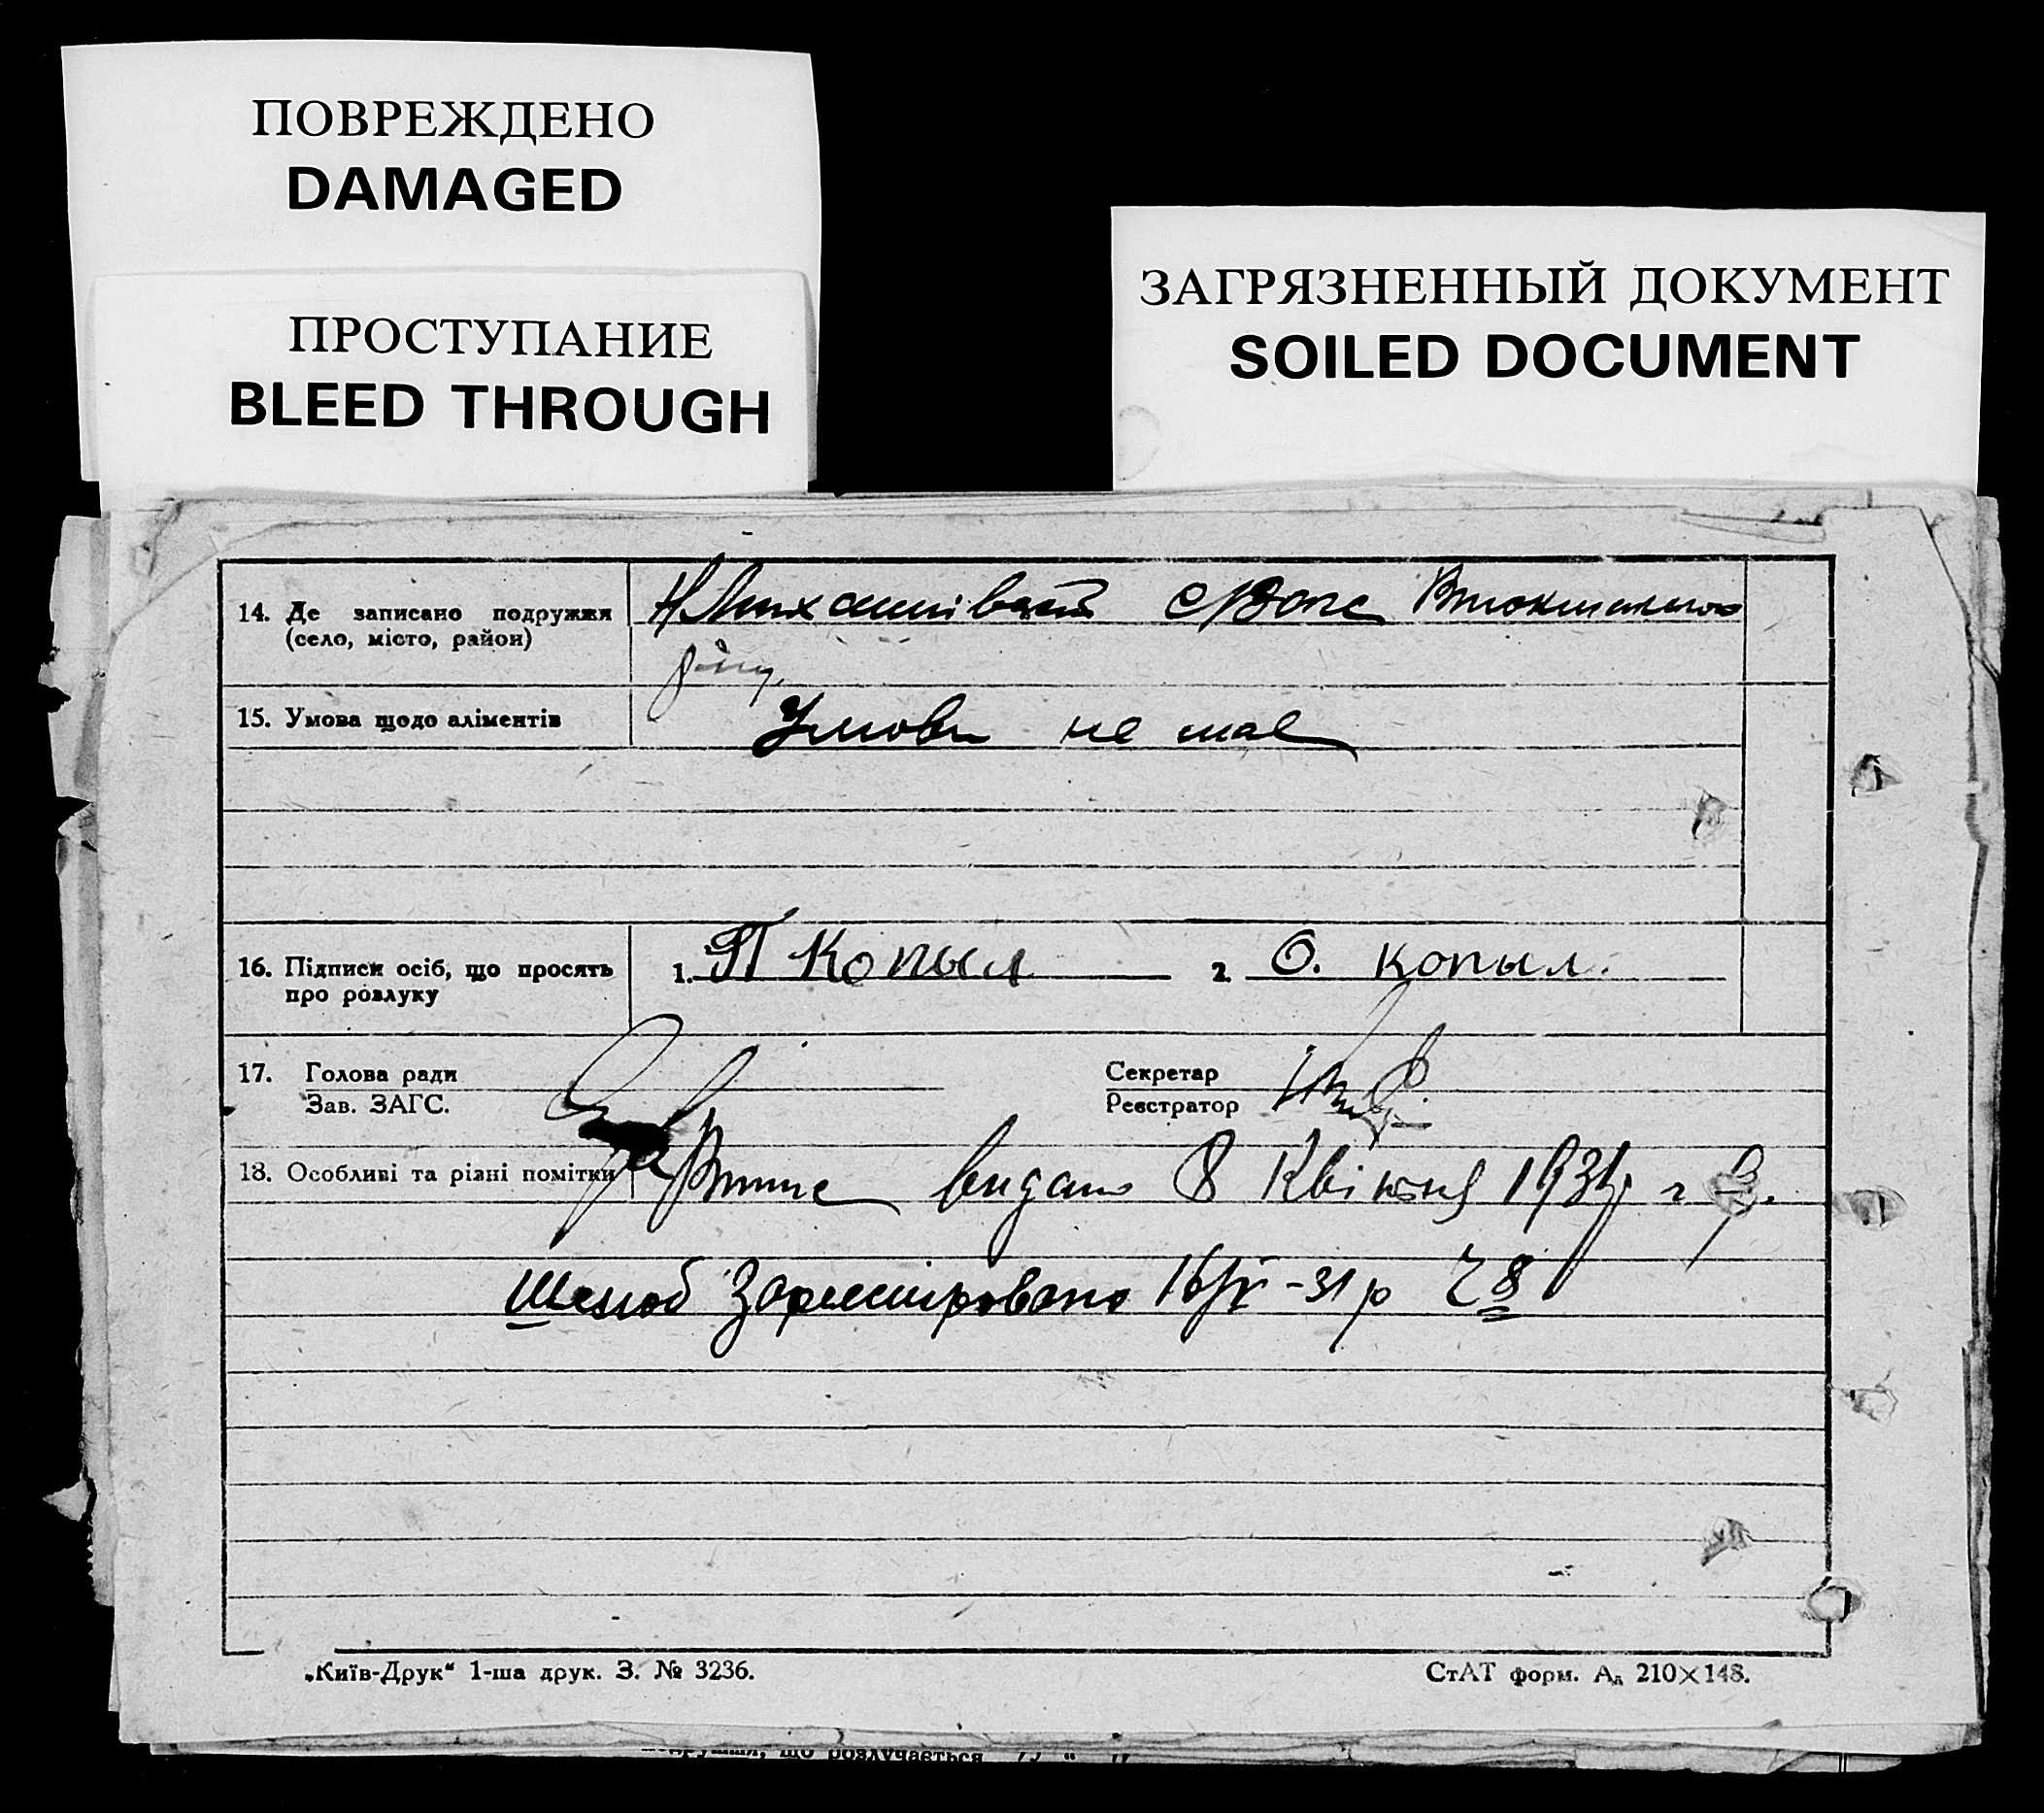 ПОВРЕЖДЕНО
DAMAGED
ПРОСТУПАНИЕ
BLEED THROUGH
ЗАГРЯЗНЕННЫЙ ДОКУМЕНТ
SOILED DOCUMENT
14. Де записано подружжя
(село, місто, район)
15. Умова щодо аліментів
Умови не має
16. Підписи осіб, що просять
про розлуку
1. П Копыл 2. О. Копыл.
17. Голова ради Секретар
Зав. ЗАГС. Реєстратор
18. Особливі та різні помітки видано 8 Квітня 1931р
Шлюб 16/IV-31р 28
„Київ-Друк“ 1-ша друк. З. № 3236.
СтАТ форм. А₅ 210×148.
що розлучається